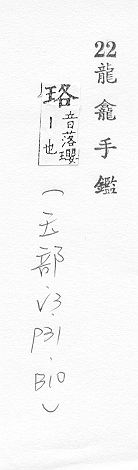 22龍龕手鑑
珞音落瓔
丨也
(玉部.V3.P31.B10)